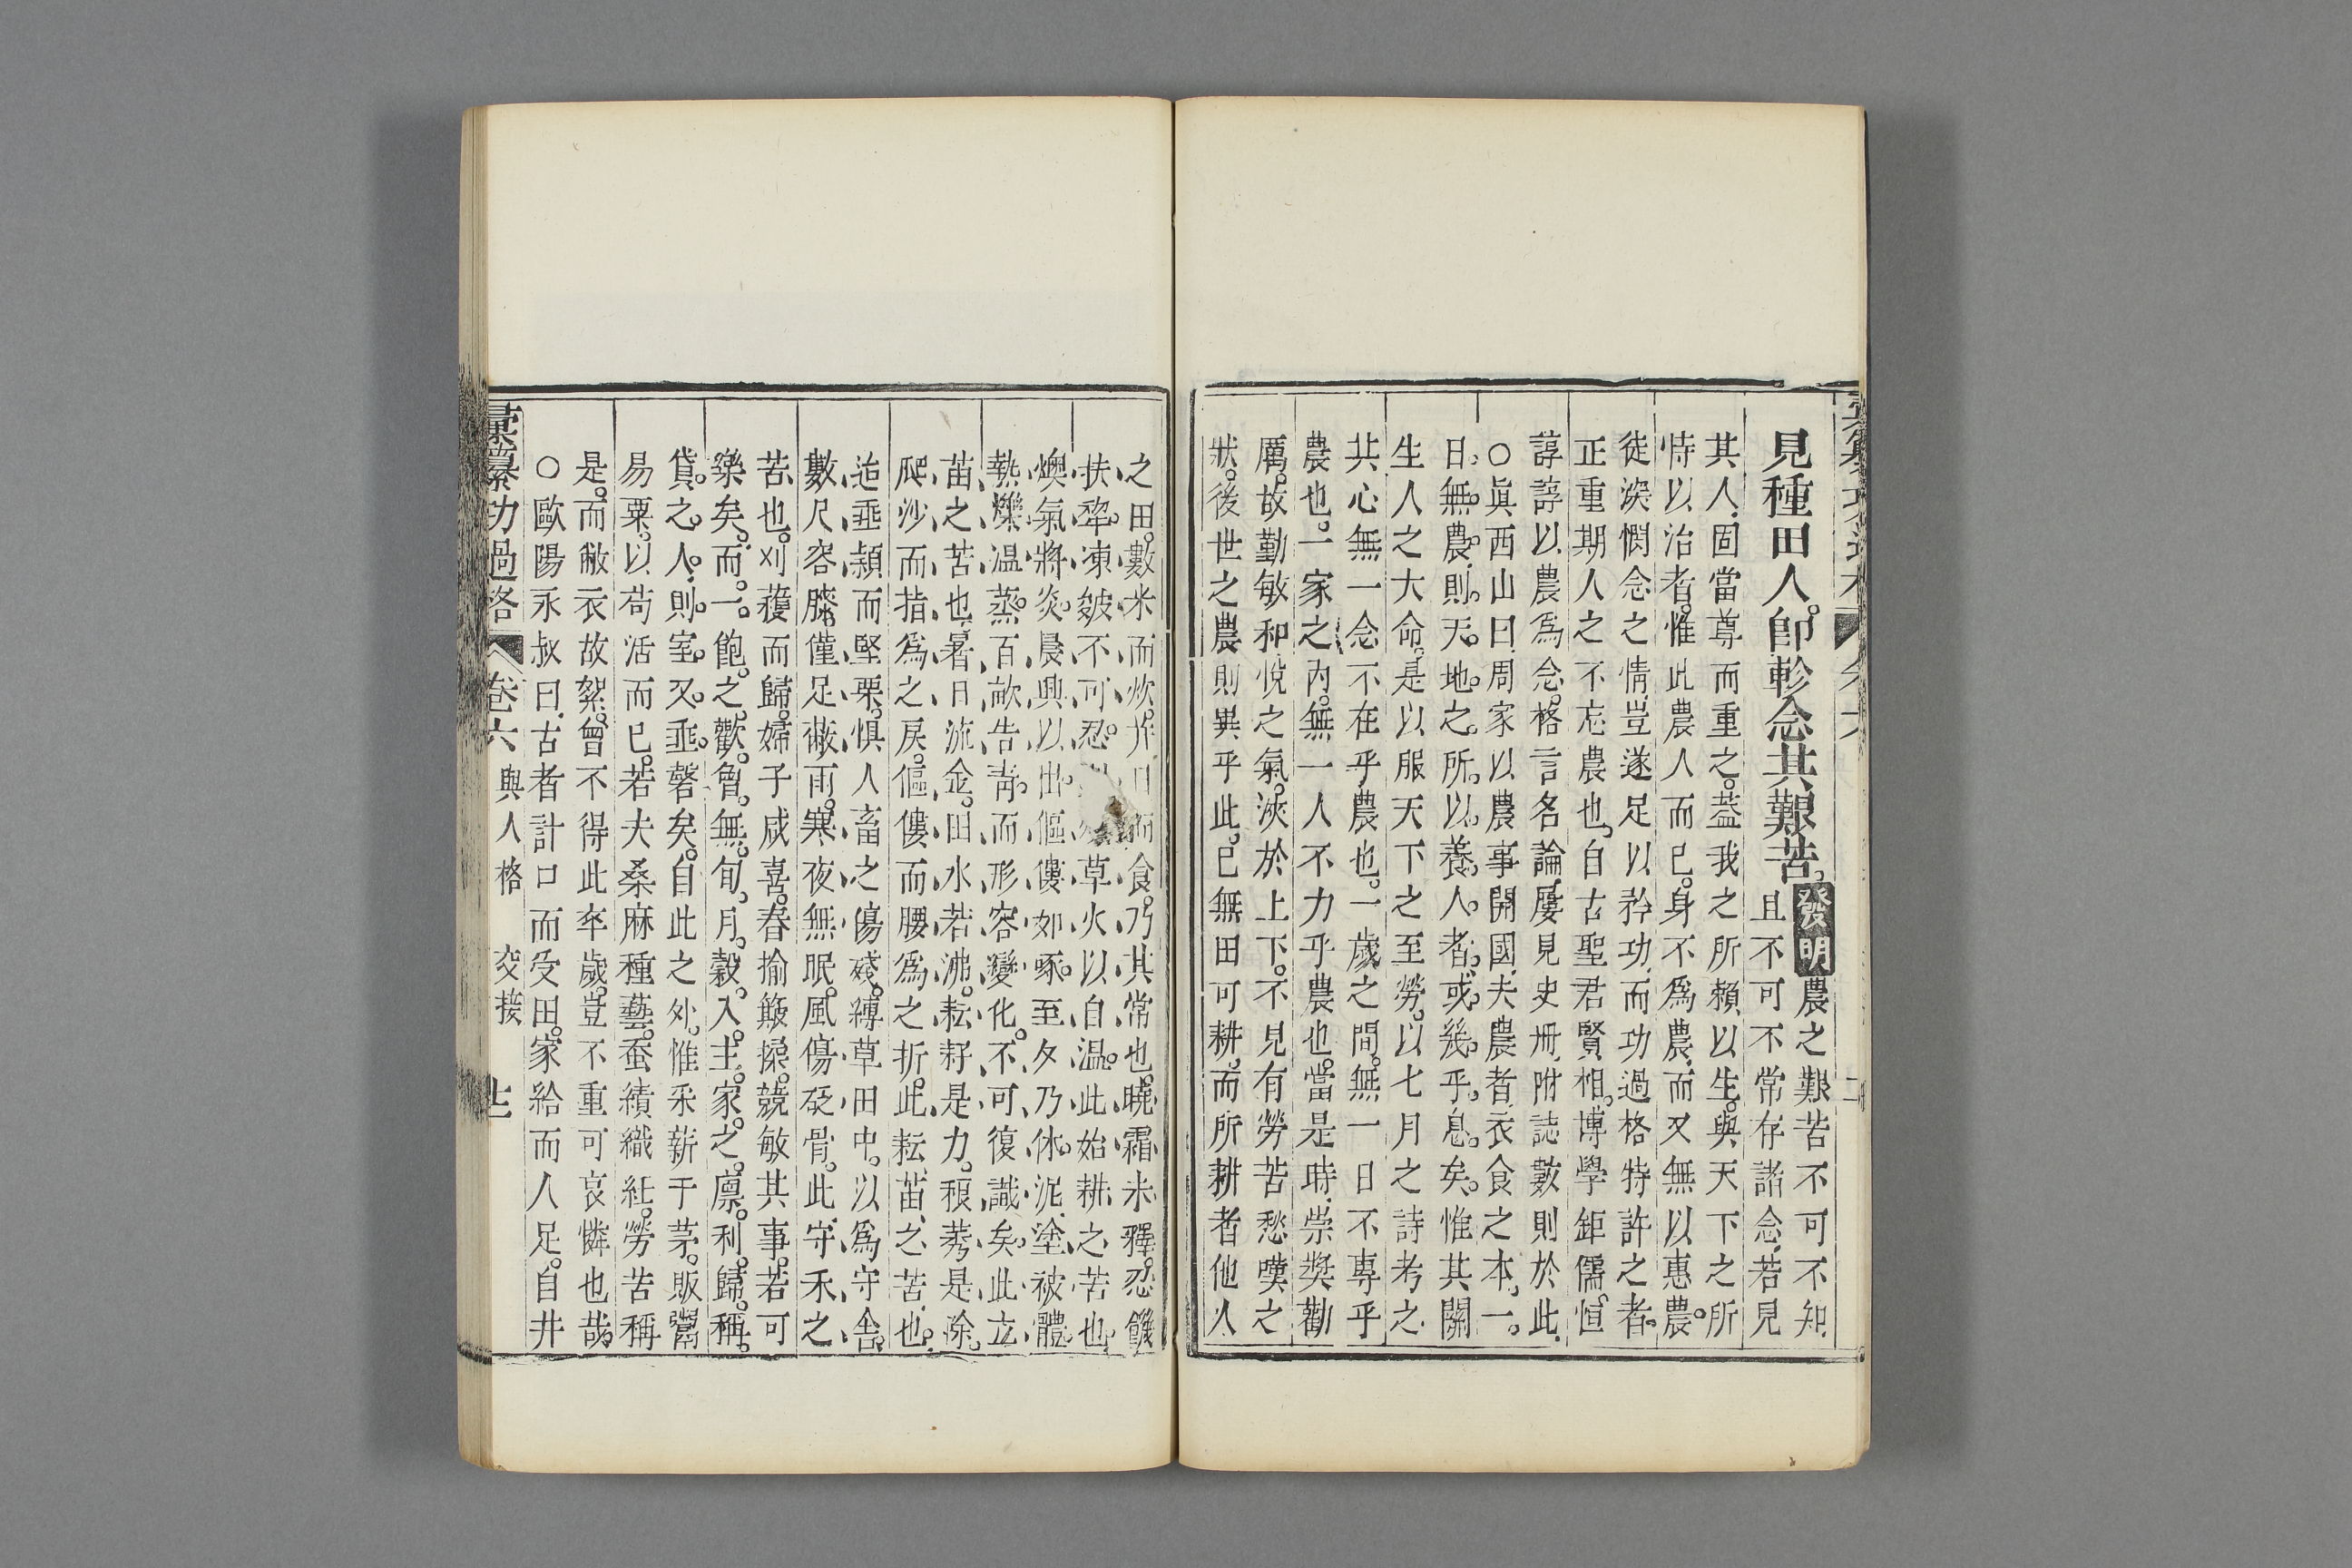 見種田人。卽軫念其艱苦。
發明農之艱苦不可不知、
且不可不常存諸念、若見
其人、固當尊而重之。葢我之所賴以生。與天下之所
恃以治者。惟此農人而已。身不爲農、而又無以惠農。
徒深憫念之情、豈遂足以矜功、而功過格特許之者。
正重期人之不忘農也。自古聖君賢相。博學鉅儒。恒
諄諄以農爲念。格言名論、屢見史冊、附誌數則於此、
○眞西山曰、周家以農事開國、夫農者、衣食之本、一。
日。無。農。則。天。地。之。所。以。養。人。者。或。幾。乎。息。矣。惟其關
生人之大命。是以服天下之至勞。以七月之詩考之
其心無一念不在乎農也。一歲之間。無一日不專乎
農也。一家之內。無一人不力乎農也。當是時、崇獎勸
厲。故勤敏和悅之氣。浹於上下。不見有勞苦愁嘆之
狀。後世之農則異乎此。已無田可耕、而所耕者他人
之田。數米而炊。幷日而食。乃其常也。曉霜未釋。忍饑
扶犂。凍皴不可忍。草火以自溫。此始耕之苦也。
燠氣將炎。晨興以出。傴僂如啄。至夕乃休。泥塗被體
熱爍溫蒸。百畝告靑。而形容變化。不可復識矣。此立
苗之苦也。暑日流金。田水若沸。耘耔是力。稂莠是除。
爬沙而指爲之戾。傴僂而腰爲之折。此耘苗之苦也。
迨垂穎而堅栗。惧人畜之傷殘。縛草田中。以爲守舍。
數尺容膝。僅足蔽雨。寒夜無眠。風傷砭骨。此守禾之
苦也。刈穫而歸。婦子咸喜。春揄簸揉。競敏其事。若可
樂矣。而。一。飽。之。歡。曾。無。旬。月。穀。入。主。家。之。廪。利。歸。稱。
貸。之。人。則。室。又。垂。罄矣。自此之外。惟采薪于茅。販鬻
易粟。以苟活而已。若夫桑麻種藝。蚕績織紝。勞苦稱
是。而敝衣故絮。曾不得此卒歲。豈不重可哀憐也哉。
○歐陽永叔曰、古者計口而受田。家給而人足。自井
彙纂功過格 卷六 與人格 交接